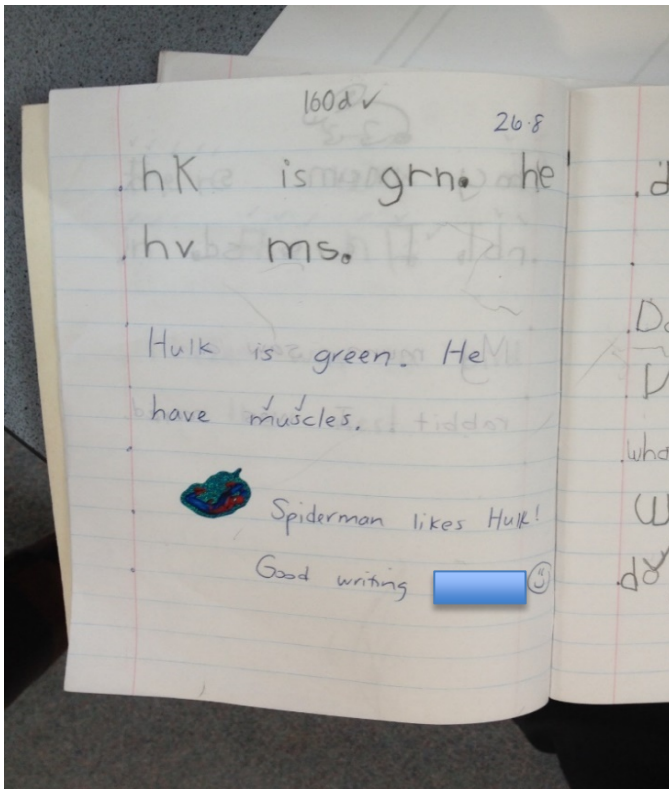 160d ✓
26.8
hK is grn. he
hv ms.
Hulk is green. He
have muscles.
Spiderman likes Hulk!
Good writing
.d
.Do
D
.who
W
.do